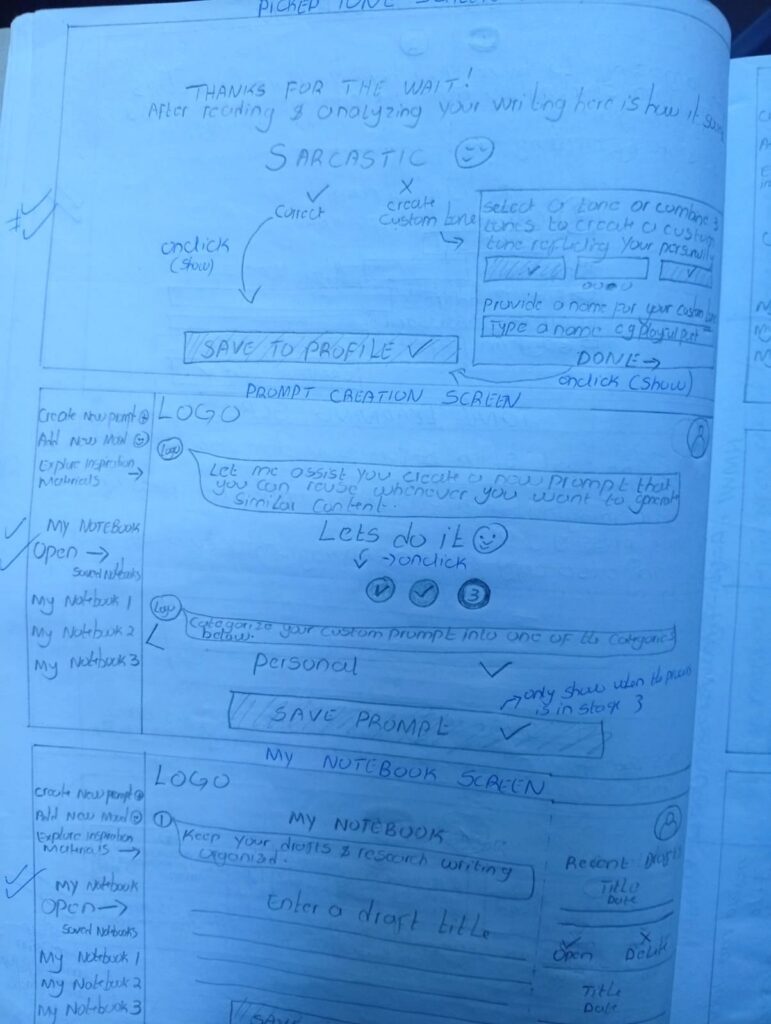 PICKED TONE SCREEN
THANKS FOR THE WAIT!
After reading & analyzing your writing here is how it
SARCASTIC
✓ X
Correct
create
custom tone
onclick
(show)
Select a tone or combine 3
tones to create a custom
tone reflecting your personality
✓ ✓
Provide a name for your custom tone
Type a name e.g playful poet
DONE →
onclick (show)
SAVE TO PROFILE ✓
PROMPT CREATION SCREEN
Create New prompt
Add New Mood
Explore Inspiration
Materials →
My NOTEBOOK
Open →
Saved Notebooks
My Notebook 1
My Notebook 2
My Notebook 3
LOGO
Logo
Let me assist you create a new prompt that
you can reuse whenever you want to generate
similar content.
Lets do it
→ onclick
✓ ✓ 3
Logo
Categorize your custom prompt into one of the categories
below.
personal
only show when the process
is in stage 3
SAVE PROMPT ✓
MY NOTEBOOK SCREEN
Create New prompt
Add New Mood
Explore Inspiration
Materials →
My Notebook
Open →
Saved Notebooks
My Notebook 1
My Notebook 2
My Notebook 3
LOGO
MY NOTEBOOK
Keep your drafts & research writing
organised.
Enter a draft title
SAVE
Recent Drafts
Title
Date
✓ X
Open Delete
Title
Date